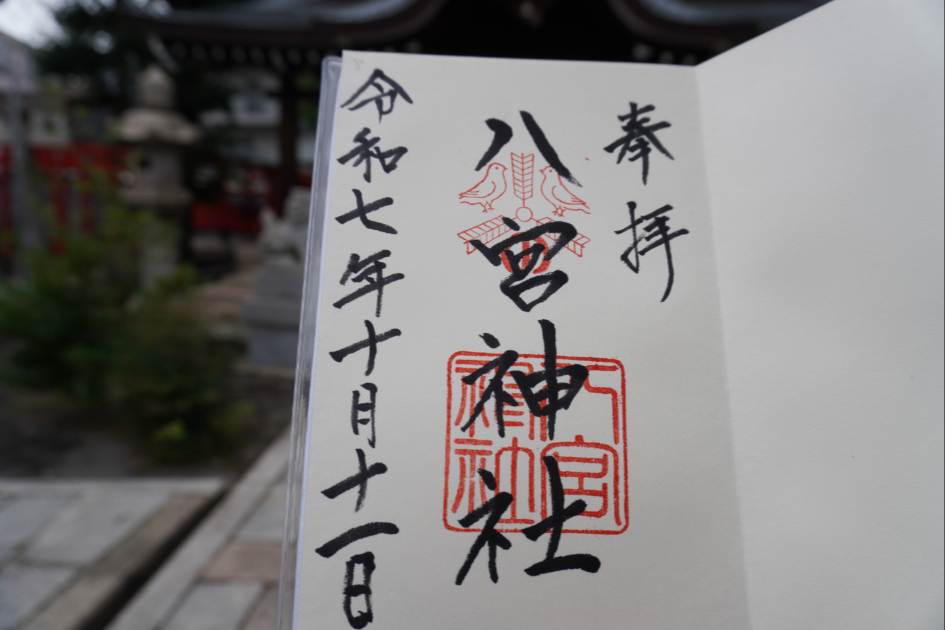 奉拝
八宮神社
八宮神社
令和七年十月十一日